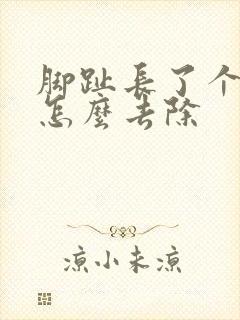 脚趾長了个
怎麼去除
凉小未凉